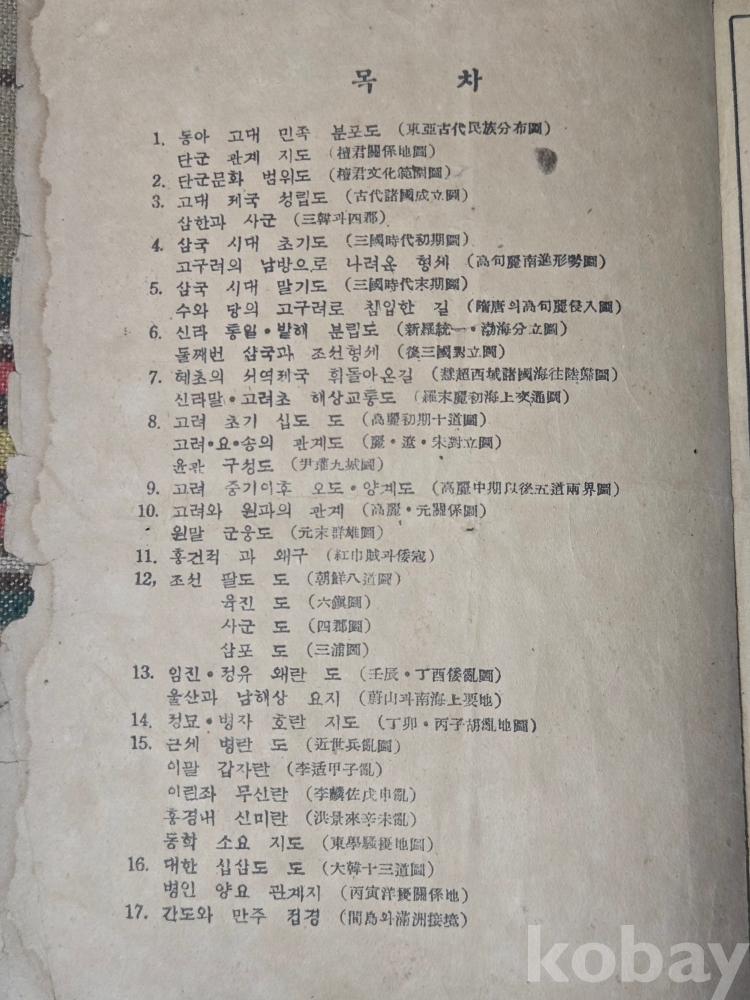 목 차
1. 동아 고대 민족 분포도 (東亞古代民族分布圖)
단군 관계 지도 (檀君關係地圖)
2. 단군문화 범위도 (檀君文化範圍圖)
3. 고대 제국 성립도 (古代諸國成立圖)
삼한과 사군 (三韓과四郡)
4. 삼국 시대 초기도 (三國時代初期圖)
고구려의 남방으로 나려온 형세 (高句麗南進形勢圖)
5. 삼국 시대 말기도 (三國時代末期圖)
수와 당의 고구려로 침입한 길 (隋唐의高句麗侵入圖)
6. 신라 통일•발해 분립도 (新羅統一•渤海分立圖)
둘째번 삼국과 조선형세 (後三國對立圖)
7. 혜초의 서역제국 휘돌아온길 (慧超西域諸國海往陸歸圖)
신라말•고려초 해상교통도 (羅末麗初海上交通圖)
8. 고려 초기 십도 도 (高麗初期十道圖)
고려•요•송의 관계도 (麗•遼•宋對立圖)
윤관 구성도 (尹瓘九城圖)
9. 고려 중기이후 오도•양계도 (高麗中期以後五道兩界圖)
10. 고려와 원과의 관계 (高麗•元關係圖)
원말 군웅도 (元末群雄圖)
11. 홍건적 과 왜구 (紅巾賊과倭寇)
12, 조선 팔도 도 (朝鮮八道圖)
육진 도 (六鎭圖)
사군 도 (四郡圖)
삼포 도 (三浦圖)
13. 임진•정유 왜란 도 (壬辰•丁酉倭亂圖)
울산과 남해상 요지 (蔚山과南海上要地)
14. 정묘•병자 호란 지도 (丁卯•丙子胡亂地圖)
15. 근세 병란 도 (近世兵亂圖)
이괄 갑자란 (李适甲子亂)
이린좌 무신란 (李麟佐戊申亂)
홍경내 신미란 (洪景來辛未亂)
동학 소요 지도 (東學騷擾地圖)
16. 대한 십삼도 도 (大韓十三道圖)
병인 양요 관계지 (丙寅洋擾關係地)
17. 간도와 만주 접경 (間島와滿洲接境)
kobay